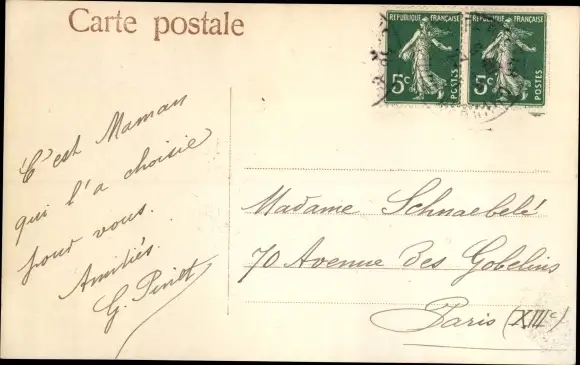 Carte postale
REPUBLIQUE FRANÇAISE
5c
POSTES
REPUBLIQUE FRANÇAISE
5c
POSTES
C'est Maman
qui l'a choisie
pour vous.
Amitiés.
G. Piniet
Madame Schnaebelé
70 Avenue des Gobelins
Paris (XIIIe)